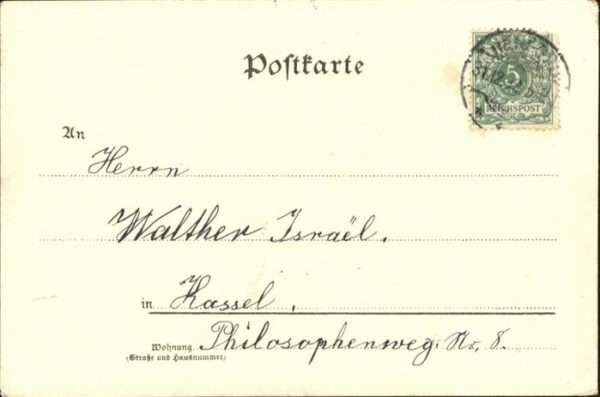 Postkarte
5
REICHSPOST
An
Herrn
Walther Israël.
in Kassel,
Wohnung Philosophenweg. Nr. 8.
(Straße und Hausnummer)